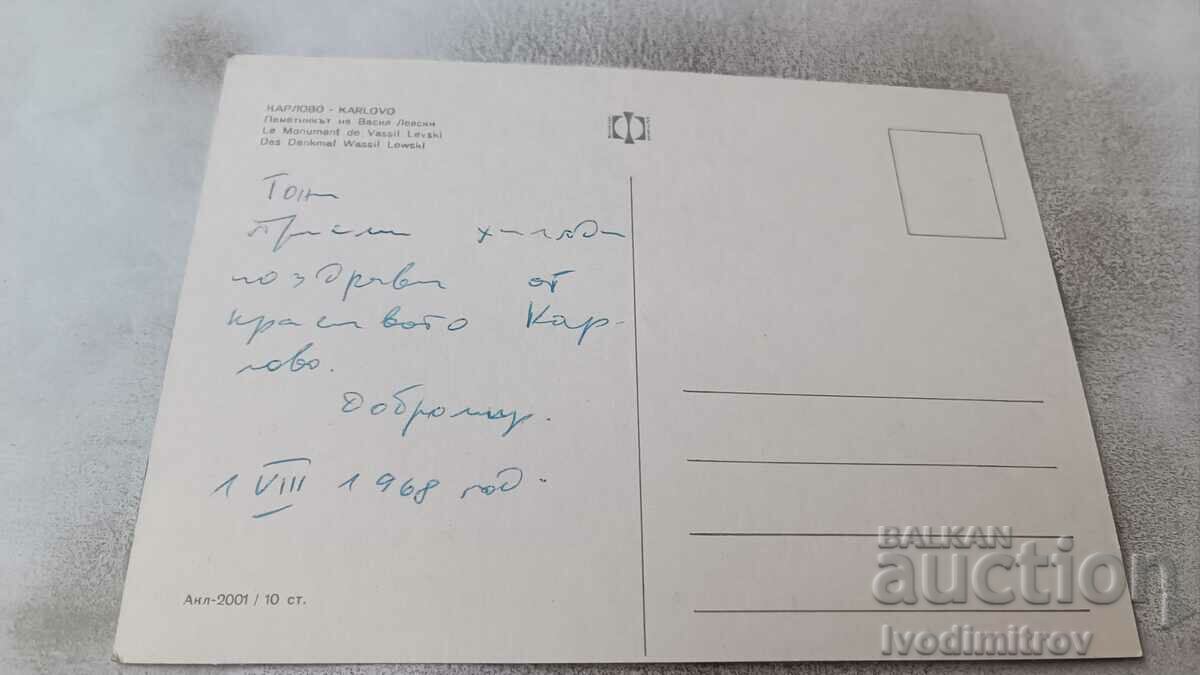 КАРЛОВО - KARLOVO
Паметникът на Васил Левски
Le Monument de Vassil Levski
Das Denkmal Wassil Lewski
Приеми хиляди
поздрави от
красивото Кар-
лово.
Добромир.
1 VIII 1968 год.
Акл-2001 / 10 ст.
BALKAN
auction
Ivodimitrov